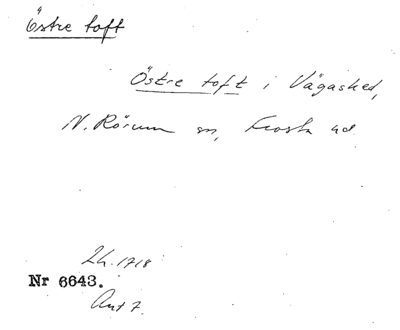 Östre toft
Östre toft i Vägasked,
N. Rörum sn, Frosta hd.
Lh. 1718
Nr 6643.
Akt 7.